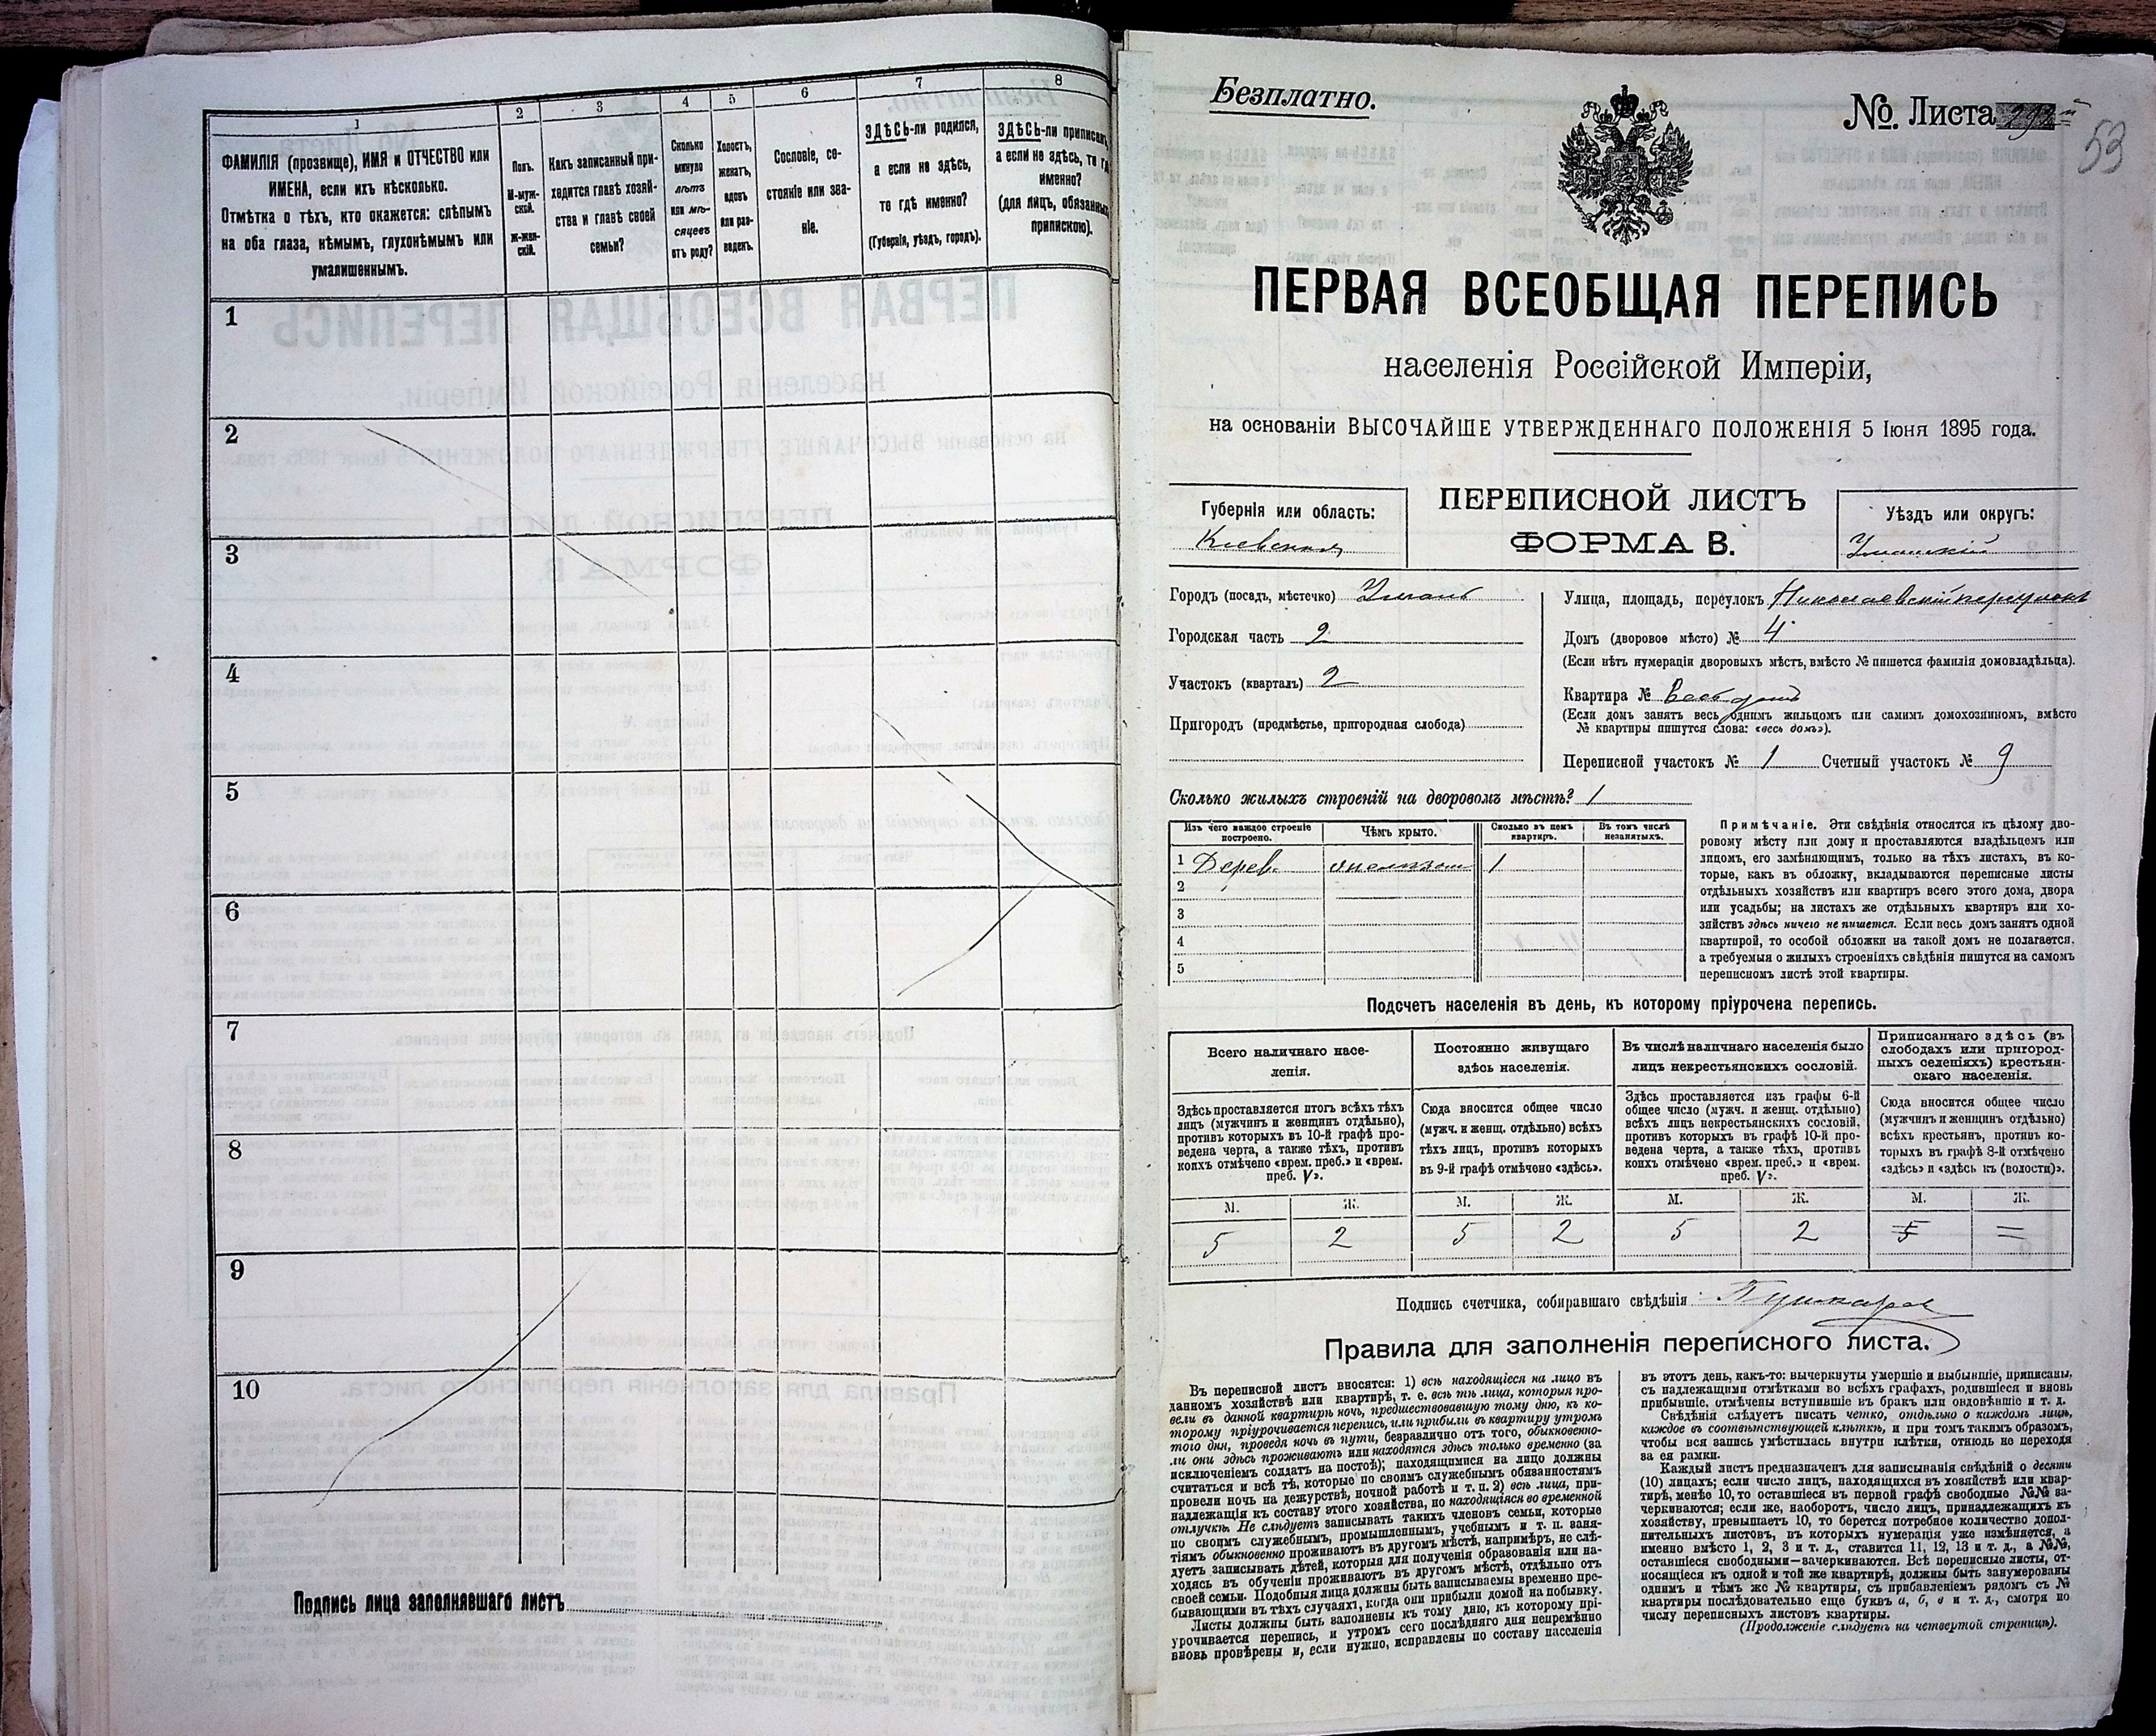 1 2 3 4 5 6 7 8
ФАМИЛІЯ (прозвище), ИМЯ и ОТЧЕСТВО или
ИМЕНА, если ихъ нѣсколько.
Отмѣтка о тѣхъ, кто окажется: слѣпымъ
на оба глаза, нѣмымъ, глухонѣмымъ или
умалишеннымъ.
Полъ.
М-муж-
ской.
ж-жен-
скій.
Какъ записанный при-
ходится главѣ хозяй-
ства и главѣ своей
семьи?
Сколько
минуло
лѣтъ
или мѣ-
сяцевъ
отъ роду?
Холостъ,
женатъ,
вдовъ
или раз-
веденъ.
Сословіе, со-
стояніе или зва-
ніе.
ЗДѢСЬ-ли родился,
а если не здѣсь,
то гдѣ именно?
(Губернія, уѣздъ, городъ).
ЗДѢСЬ-ли приписанъ,
а если не здѣсь, то гдѣ
именно?
(для лицъ, обязанныхъ
припискою).
1
2
3
4
5
6
7
8
9
10
Подпись лица заполнявшаго листъ
Безплатно.
№ Листа
53
ПЕРВАЯ ВСЕОБЩАЯ ПЕРЕПИСЬ
населенія Россійской Имперіи,
на основаніи ВЫСОЧАЙШЕ УТВЕРЖДЕННАГО ПОЛОЖЕНІЯ 5 Іюня 1895 года.
Губернія или область:
Кіевская
ПЕРЕПИСНОЙ ЛИСТЪ
ФОРМА В.
Уѣздъ или округъ:
Уманскій
Городъ (посадъ, мѣстечко) Умань
Городская часть 2
Участокъ (кварталъ) 2
Пригородъ (предмѣстье, пригородная слобода)
Улица, площадь, переулокъ Николаевскій переулокъ
Домъ (дворовое мѣсто) № 4
(Если нѣтъ нумераціи дворовыхъ мѣстъ, вмѣсто № пишется фамилія домовладѣльца).
Квартира № Весь домъ
(Если домъ занятъ весь однимъ жильцомъ или самимъ домохозяиномъ, вмѣсто
№ квартиры пишутся слова: «весь домъ»).
Переписной участокъ № 1 Счетный участокъ № 9
Сколько жилыхъ строеній на дворовомъ мѣстѣ? 1
Изъ чего каждое строеніе
построено.
Чѣмъ крыто.
Сколько въ немъ
квартиръ.
Въ томъ числѣ
незанятыхъ.
1 Дерев. желѣзом 1
2
3
4
5
Примѣчаніе. Эти свѣдѣнія относятся къ цѣлому дво-
ровому мѣсту или дому и проставляются владѣльцемъ или
лицомъ, его замѣняющимъ, только на тѣхъ листахъ, въ ко-
торые, какъ въ обложку, вкладываются переписные листы
отдѣльныхъ хозяйствъ или квартиръ всего этого дома, двора
или усадьбы; на листахъ же отдѣльныхъ квартиръ или хо-
зяйствъ здѣсь ничего не пишется. Если весь домъ занятъ одной
квартирой, то особой обложки на такой домъ не полагается,
а требуемыя о жилыхъ строеніяхъ свѣдѣнія пишутся на самомъ
переписномъ листѣ этой квартиры.
Подсчетъ населенія въ день, къ которому пріурочена перепись.
Всего наличнаго насе-
ленія.
Постоянно живущаго
здѣсь населенія.
Въ числѣ наличнаго населенія было
лицъ некрестьянскихъ сословій.
Приписаннаго здѣсь (въ
слободахъ или пригород-
ныхъ селеніяхъ) крестьян-
скаго населенія.
Здѣсь проставляется итогъ всѣхъ тѣхъ
лицъ (мужчинъ и женщинъ отдѣльно),
противъ которыхъ въ 10-й графѣ про-
ведена черта, а также тѣхъ, противъ
коихъ отмѣчено «врем. преб.» и «врем.
преб. V».
Сюда вносится общее число
(мужч. и женщ. отдѣльно) всѣхъ
тѣхъ лицъ, противъ которыхъ
въ 9-й графѣ отмѣчено «здѣсь».
Здѣсь проставляется изъ графы 6-й
общее число (мужч. и женщ. отдѣльно)
всѣхъ лицъ некрестьянскихъ сословій,
противъ которыхъ въ графѣ 10-й про-
ведена черта, а также тѣхъ, противъ
коихъ отмѣчено «врем. преб.» и «врем.
преб. V».
Сюда вносится общее число
(мужчинъ и женщинъ отдѣльно)
всѣхъ крестьянъ, противъ ко-
торыхъ въ графѣ 8-й отмѣчено
«здѣсь» и «здѣсь къ (волости)».
М. Ж. М. Ж. М. Ж. М. Ж.
5 2 5 2 5 2 5 =
Подпись счетчика, собиравшаго свѣдѣнія
Правила для заполненія переписного листа.
Въ переписной листъ вносятся: 1) всѣ находящіеся на лицо въ
данномъ хозяйствѣ или квартирѣ, т. е. всѣ тѣ лица, которыя про-
вели въ данной квартирѣ ночь, предшествовавшую тому дню, къ ко-
торому пріурочивается перепись, или прибыли въ квартиру утромъ
того дня, проведя ночь въ пути, безразлично отъ того, обыкновенно-
ли они здѣсь проживаютъ или находятся здѣсь только временно (за
исключеніемъ солдатъ на постоѣ); находящимися на лицо должны
считаться и всѣ тѣ, которые по своимъ служебнымъ обязанностямъ
провели ночь на дежурствѣ, ночной работѣ и т. п. 2) всѣ лица, при-
надлежащія къ составу этого хозяйства, но находящіяся во временной
отлучкѣ. Не слѣдуетъ записывать такихъ членовъ семьи, которые
по своимъ служебнымъ, промышленнымъ, учебнымъ и т. п. заня-
тіямъ обыкновенно проживаютъ въ другомъ мѣстѣ, напримѣръ, не слѣ-
дуетъ записывать дѣтей, которыя для полученія образованія или на-
ходясь въ обученіи проживаютъ въ другомъ мѣстѣ, отдѣльно отъ
своей семьи. Подобныя лица должны быть записываемы временно пре-
бывающими въ тѣхъ случаяхъ, когда они прибыли домой на побывку.
Листы должны быть заполнены къ тому дню, къ которому прі-
урочивается перепись, и утромъ сего послѣдняго дня непремѣнно
вновь провѣрены и, если нужно, исправлены по составу населенія
въ этотъ день, какъ-то: вычеркнуты умершіе и выбывшіе, приписаны,
съ надлежащими отмѣтками во всѣхъ графахъ, родившіеся и вновь
прибывшіе, отмѣчены вступившіе въ бракъ или овдовѣвшіе и т. д.
Свѣдѣнія слѣдуетъ писать четко, отдѣльно о каждомъ лицѣ,
каждое въ соотвѣтствующей клѣткѣ, и при томъ такимъ образомъ,
чтобы вся запись умѣстилась внутри клѣтки, отнюдь не переходя
за ея рамки.
Каждый листъ предназначенъ для записыванія свѣдѣній о десяти
(10) лицахъ; если число лицъ, находящихся въ хозяйствѣ или квар-
тирѣ, менѣе 10, то оставшіеся въ первой графѣ свободные №№ за-
черкиваются; если же, наоборотъ, число лицъ, принадлежащихъ къ
хозяйству, превышаетъ 10, то берется потребное количество допол-
нительныхъ листовъ, въ которыхъ нумерація уже измѣняется, а
именно вмѣсто 1, 2, 3 и т. д., ставится 11, 12, 13 и т. д., а №№,
оставшіеся свободными—зачеркиваются. Всѣ переписные листы, от-
носящіеся къ одной и той же квартирѣ, должны быть занумерованы
однимъ и тѣмъ же № квартиры, съ прибавленіемъ рядомъ съ №
квартиры послѣдовательно еще буквъ а, б, в и т. д., смотря по
числу переписныхъ листовъ квартиры.
(Продолженіе слѣдуетъ на четвертой страницѣ).